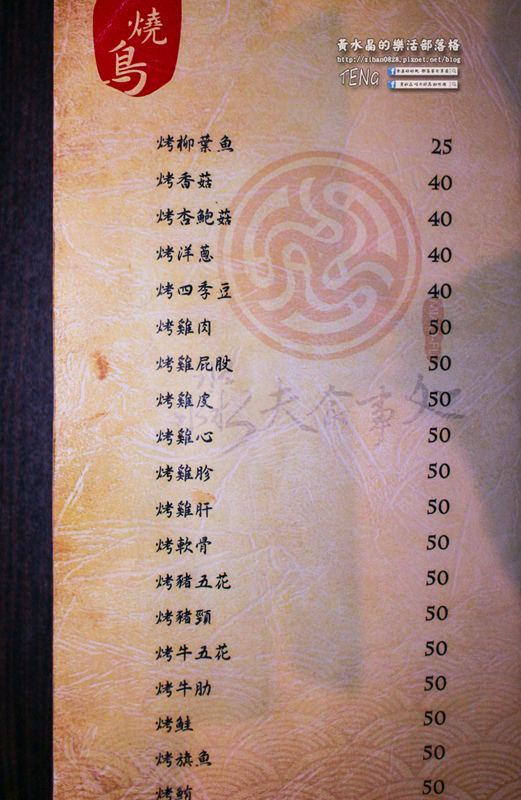 燒鳥
黃水晶的樂活部落格
http://sihao0828.pixnet.net/blog
TENG
烤柳葉魚 25
烤香菇 40
烤杏鮑菇 40
烤洋蔥 40
烤四季豆 40
烤雞肉 50
烤雞屁股 50
烤雞皮 50
烤雞心 50
烤雞胗 50
烤雞肝 50
烤軟骨 50
烤豬五花 50
烤豬頸 50
烤牛五花 50
烤牛肋 50
烤鮭 50
烤旗魚 50
烤鮪 50
夫食事処